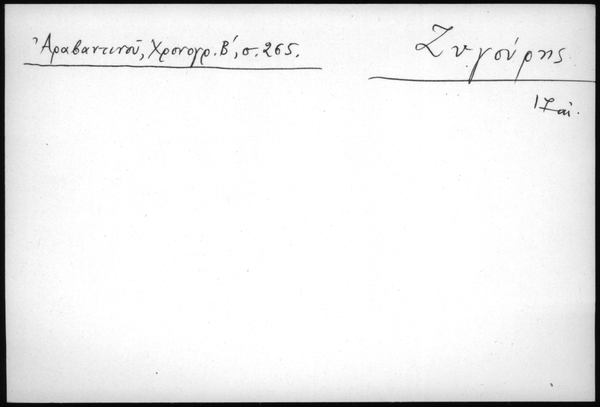 Ἀραβαντινοῦ, Χρονογρ. Β', σ. 265.
Ζυγούρης
17 αἰ.